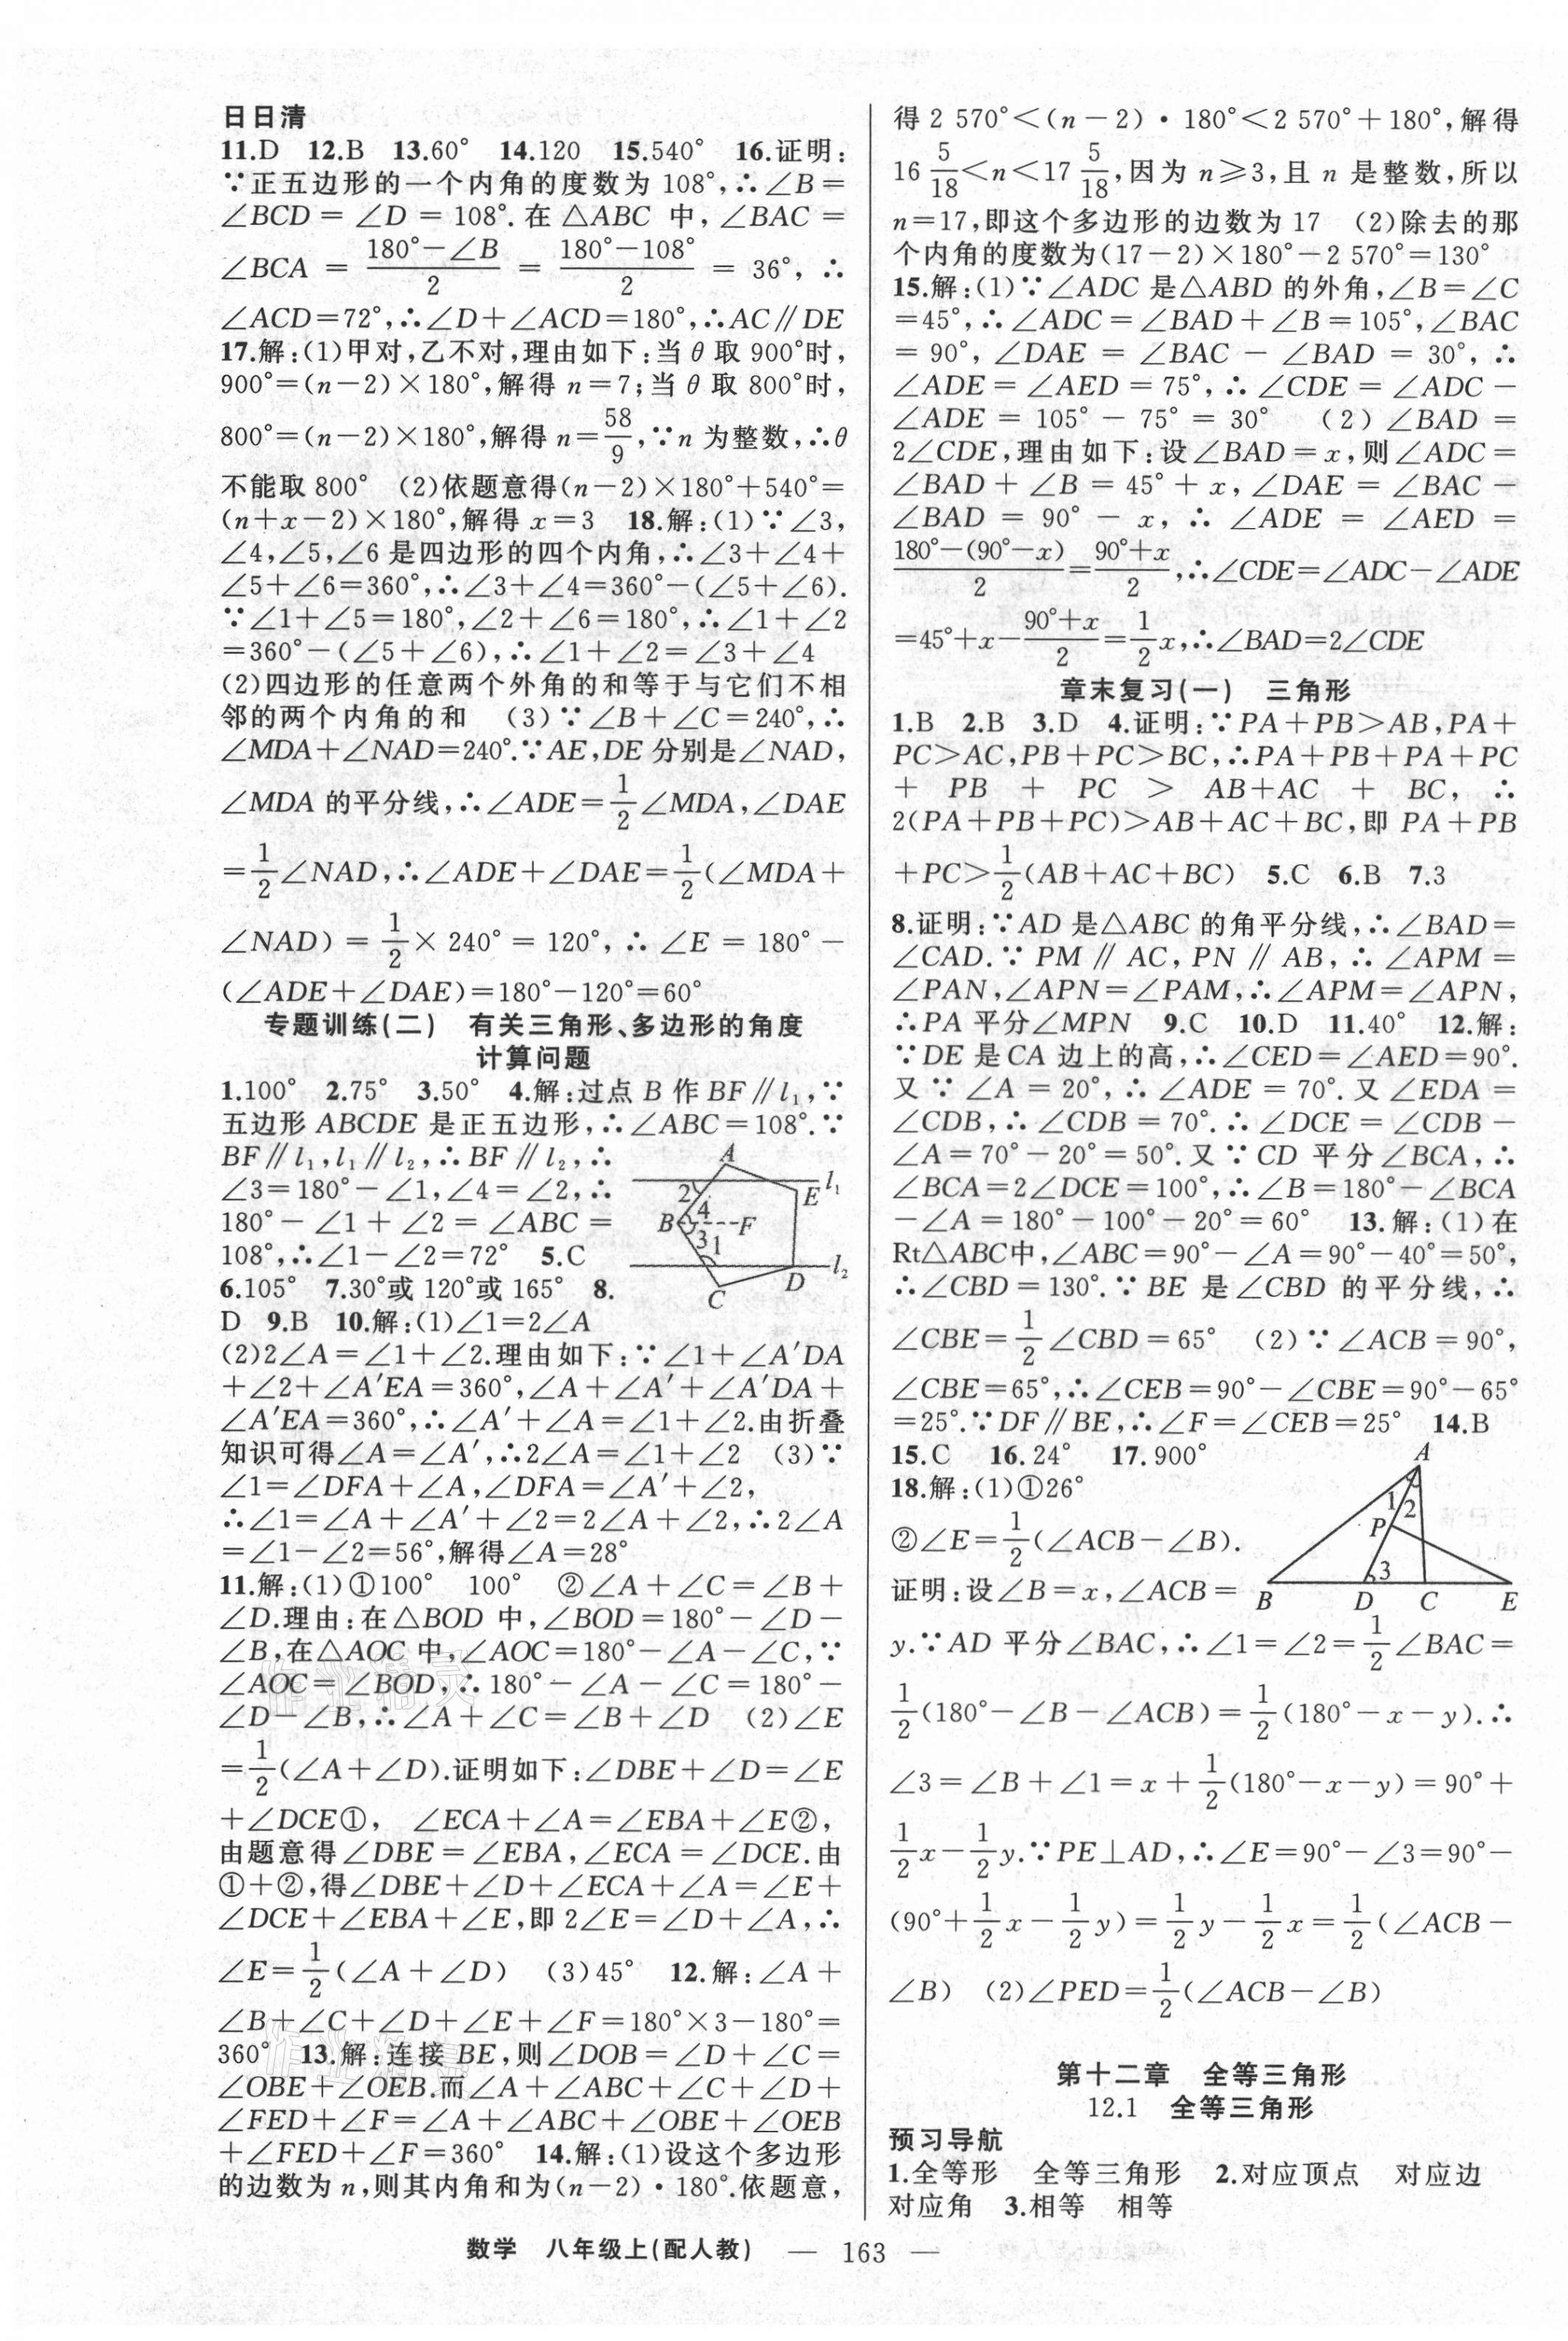 日日清
11.D 12.B 13.60° 14.120 15.540° 16.证明:
∵正五边形的一个内角的度数为 108°,∴∠B=
∠BCD = ∠D = 108°. 在 △ABC 中,∠BAC =
∠BCA = (180°-∠B)/2 = (180°-108°)/2 = 36°, ∴
∠ACD=72°,∴∠D+∠ACD=180°,∴AC∥DE
17.解:(1)甲对,乙不对,理由如下:当 θ 取 900°时,
900°=(n-2)×180°,解得 n=7;当 θ 取 800°时,
800°=(n-2)×180°,解得 n=58/9,∵n 为整数,∴θ
不能取 800° (2)依题意得(n-2)×180°+540°=
(n+x-2)×180°,解得 x=3 18.解:(1)∵∠3,
∠4,∠5,∠6 是四边形的四个内角,∴∠3+∠4+
∠5+∠6=360°,∴∠3+∠4=360°-(∠5+∠6).
∵∠1+∠5=180°,∠2+∠6=180°,∴∠1+∠2
=360°-(∠5+∠6),∴∠1+∠2=∠3+∠4
(2)四边形的任意两个外角的和等于与它们不相
邻的两个内角的和 (3)∵∠B+∠C=240°,∴
∠MDA+∠NAD=240°.∵AE,DE 分别是∠NAD,
∠MDA 的平分线,∴∠ADE=1/2∠MDA,∠DAE
=1/2∠NAD,∴∠ADE+∠DAE=1/2(∠MDA+
∠NAD) = 1/2 × 240° = 120°, ∴ ∠E = 180° -
(∠ADE+∠DAE)=180°-120°=60°
专题训练(二) 有关三角形、多边形的角度
计算问题
1.100° 2.75° 3.50° 4.解:过点 B 作 BF∥l₁,∵
五边形 ABCDE 是正五边形,∴∠ABC=108°.∵
BF∥l₁,l₁∥l₂,∴BF∥l₂,∴
∠3=180°-∠1,∠4=∠2,∴
180°-∠1+∠2=∠ABC=
108°,∴∠1-∠2=72° 5.C
6.105° 7.30°或 120°或 165° 8.
A
l₁
E
2
4
B
F
3
1
l₂
D
C
D 9.B 10.解:(1)∠1=2∠A
(2)2∠A=∠1+∠2.理由如下:∵∠1+∠A′DA
+∠2+∠A′EA=360°,∠A+∠A′+∠A′DA+
∠A′EA=360°,∴∠A′+∠A=∠1+∠2.由折叠
知识可得∠A=∠A′,∴2∠A=∠1+∠2 (3)∵
∠1=∠DFA+∠A,∠DFA=∠A′+∠2,
∴∠1=∠A+∠A′+∠2=2∠A+∠2,∴2∠A
=∠1-∠2=56°,解得∠A=28°
11.解:(1)①100° 100° ②∠A+∠C=∠B+
∠D.理由:在△BOD 中,∠BOD=180°-∠D-
∠B,在△AOC 中,∠AOC=180°-∠A-∠C,∵
∠AOC=∠BOD,∴180°-∠A-∠C=180°-
∠D-∠B,∴∠A+∠C=∠B+∠D (2)∠E
=1/2(∠A+∠D).证明如下:∠DBE+∠D=∠E
+∠DCE①, ∠ECA+∠A=∠EBA+∠E②,
由题意得∠DBE=∠EBA,∠ECA=∠DCE.由
①+②,得∠DBE+∠D+∠ECA+∠A=∠E+
∠DCE+∠EBA+∠E,即 2∠E=∠D+∠A,∴
∠E=1/2(∠A+∠D) (3)45° 12.解:∠A+
∠B+∠C+∠D+∠E+∠F=180°×3-180°=
360° 13.解:连接 BE,则∠DOB=∠D+∠C=
∠OBE+∠OEB.而∠A+∠ABC+∠C+∠D+
∠FED+∠F=∠A+∠ABC+∠OBE+∠OEB
+∠FED+∠F=360° 14.解:(1)设这个多边形
的边数为 n,则其内角和为(n-2)·180°.依题意,
得 2 570°<(n-2)·180°<2 570°+180°,解得
16 5/18<n<17 5/18,因为 n≥3,且 n 是整数,所以
n=17,即这个多边形的边数为 17 (2)除去的那
个内角的度数为(17-2)×180°-2 570°=130°
15.解:(1)∵∠ADC 是△ABD 的外角,∠B=∠C
=45°,∴∠ADC=∠BAD+∠B=105°,∠BAC
= 90°, ∠DAE = ∠BAC - ∠BAD = 30°, ∴
∠ADE=∠AED=75°,∴∠CDE=∠ADC-
∠ADE = 105° - 75° = 30° (2) ∠BAD =
2∠CDE,理由如下:设∠BAD=x,则∠ADC=
∠BAD+∠B=45°+x,∠DAE=∠BAC-
∠BAD = 90° - x, ∴ ∠ADE = ∠AED =
(180°-(90°-x))/2=(90°+x)/2,∴∠CDE=∠ADC-∠ADE
=45°+x-(90°+x)/2=1/2x,∴∠BAD=2∠CDE
章末复习(一) 三角形
1.B 2.B 3.D 4.证明:∵PA+PB>AB,PA+
PC>AC,PB+PC>BC,∴PA+PB+PA+PC
+ PB + PC > AB+AC + BC, ∴
2(PA+PB+PC)>AB+AC+BC,即 PA+PB
+PC>1/2(AB+AC+BC) 5.C 6.B 7.3
8.证明:∵AD 是△ABC 的角平分线,∴∠BAD=
∠CAD.∵PM∥AC,PN∥AB,∴∠APM=
∠PAN,∠APN=∠PAM,∴∠APM=∠APN,
∴PA 平分∠MPN 9.C 10.D 11.40° 12.解:
∵DE 是 CA 边上的高,∴∠CED=∠AED=90°.
又∵∠A=20°,∴∠ADE=70°.又∠EDA=
∠CDB,∴∠CDB=70°.∴∠DCE=∠CDB-
∠A=70°-20°=50°.又∵CD 平分∠BCA,∴
∠BCA=2∠DCE=100°,∴∠B=180°-∠BCA
-∠A=180°-100°-20°=60° 13.解:(1)在
Rt△ABC中,∠ABC=90°-∠A=90°-40°=50°,
∴∠CBD=130°.∵BE 是∠CBD 的平分线,∴
∠CBE=1/2∠CBD=65° (2)∵∠ACB=90°,
∠CBE=65°,∴∠CEB=90°-∠CBE=90°-65°
=25°.∵DF∥BE,∴∠F=∠CEB=25° 14.B
15.C 16.24° 17.900°
18.解:(1)①26°
②∠E=1/2(∠ACB-∠B).
证明:设∠B=x,∠ACB=
A
1
2
P
3
B
D
C
E
y.∵AD 平分∠BAC,∴∠1=∠2=1/2∠BAC=
1/2(180°-∠B-∠ACB)=1/2(180°-x-y).∴
∠3=∠B+∠1=x+1/2(180°-x-y)=90°+
1/2x-1/2y.∵PE⊥AD,∴∠E=90°-∠3=90°-
(90°+1/2x-1/2y)=1/2y-1/2x=1/2(∠ACB-
∠B) (2)∠PED=1/2(∠ACB-∠B)
第十二章 全等三角形
12.1 全等三角形
预习导航
1.全等形 全等三角形 2.对应顶点 对应边
对应角 3.相等 相等
数学 八年级上(配人教) — 163 —